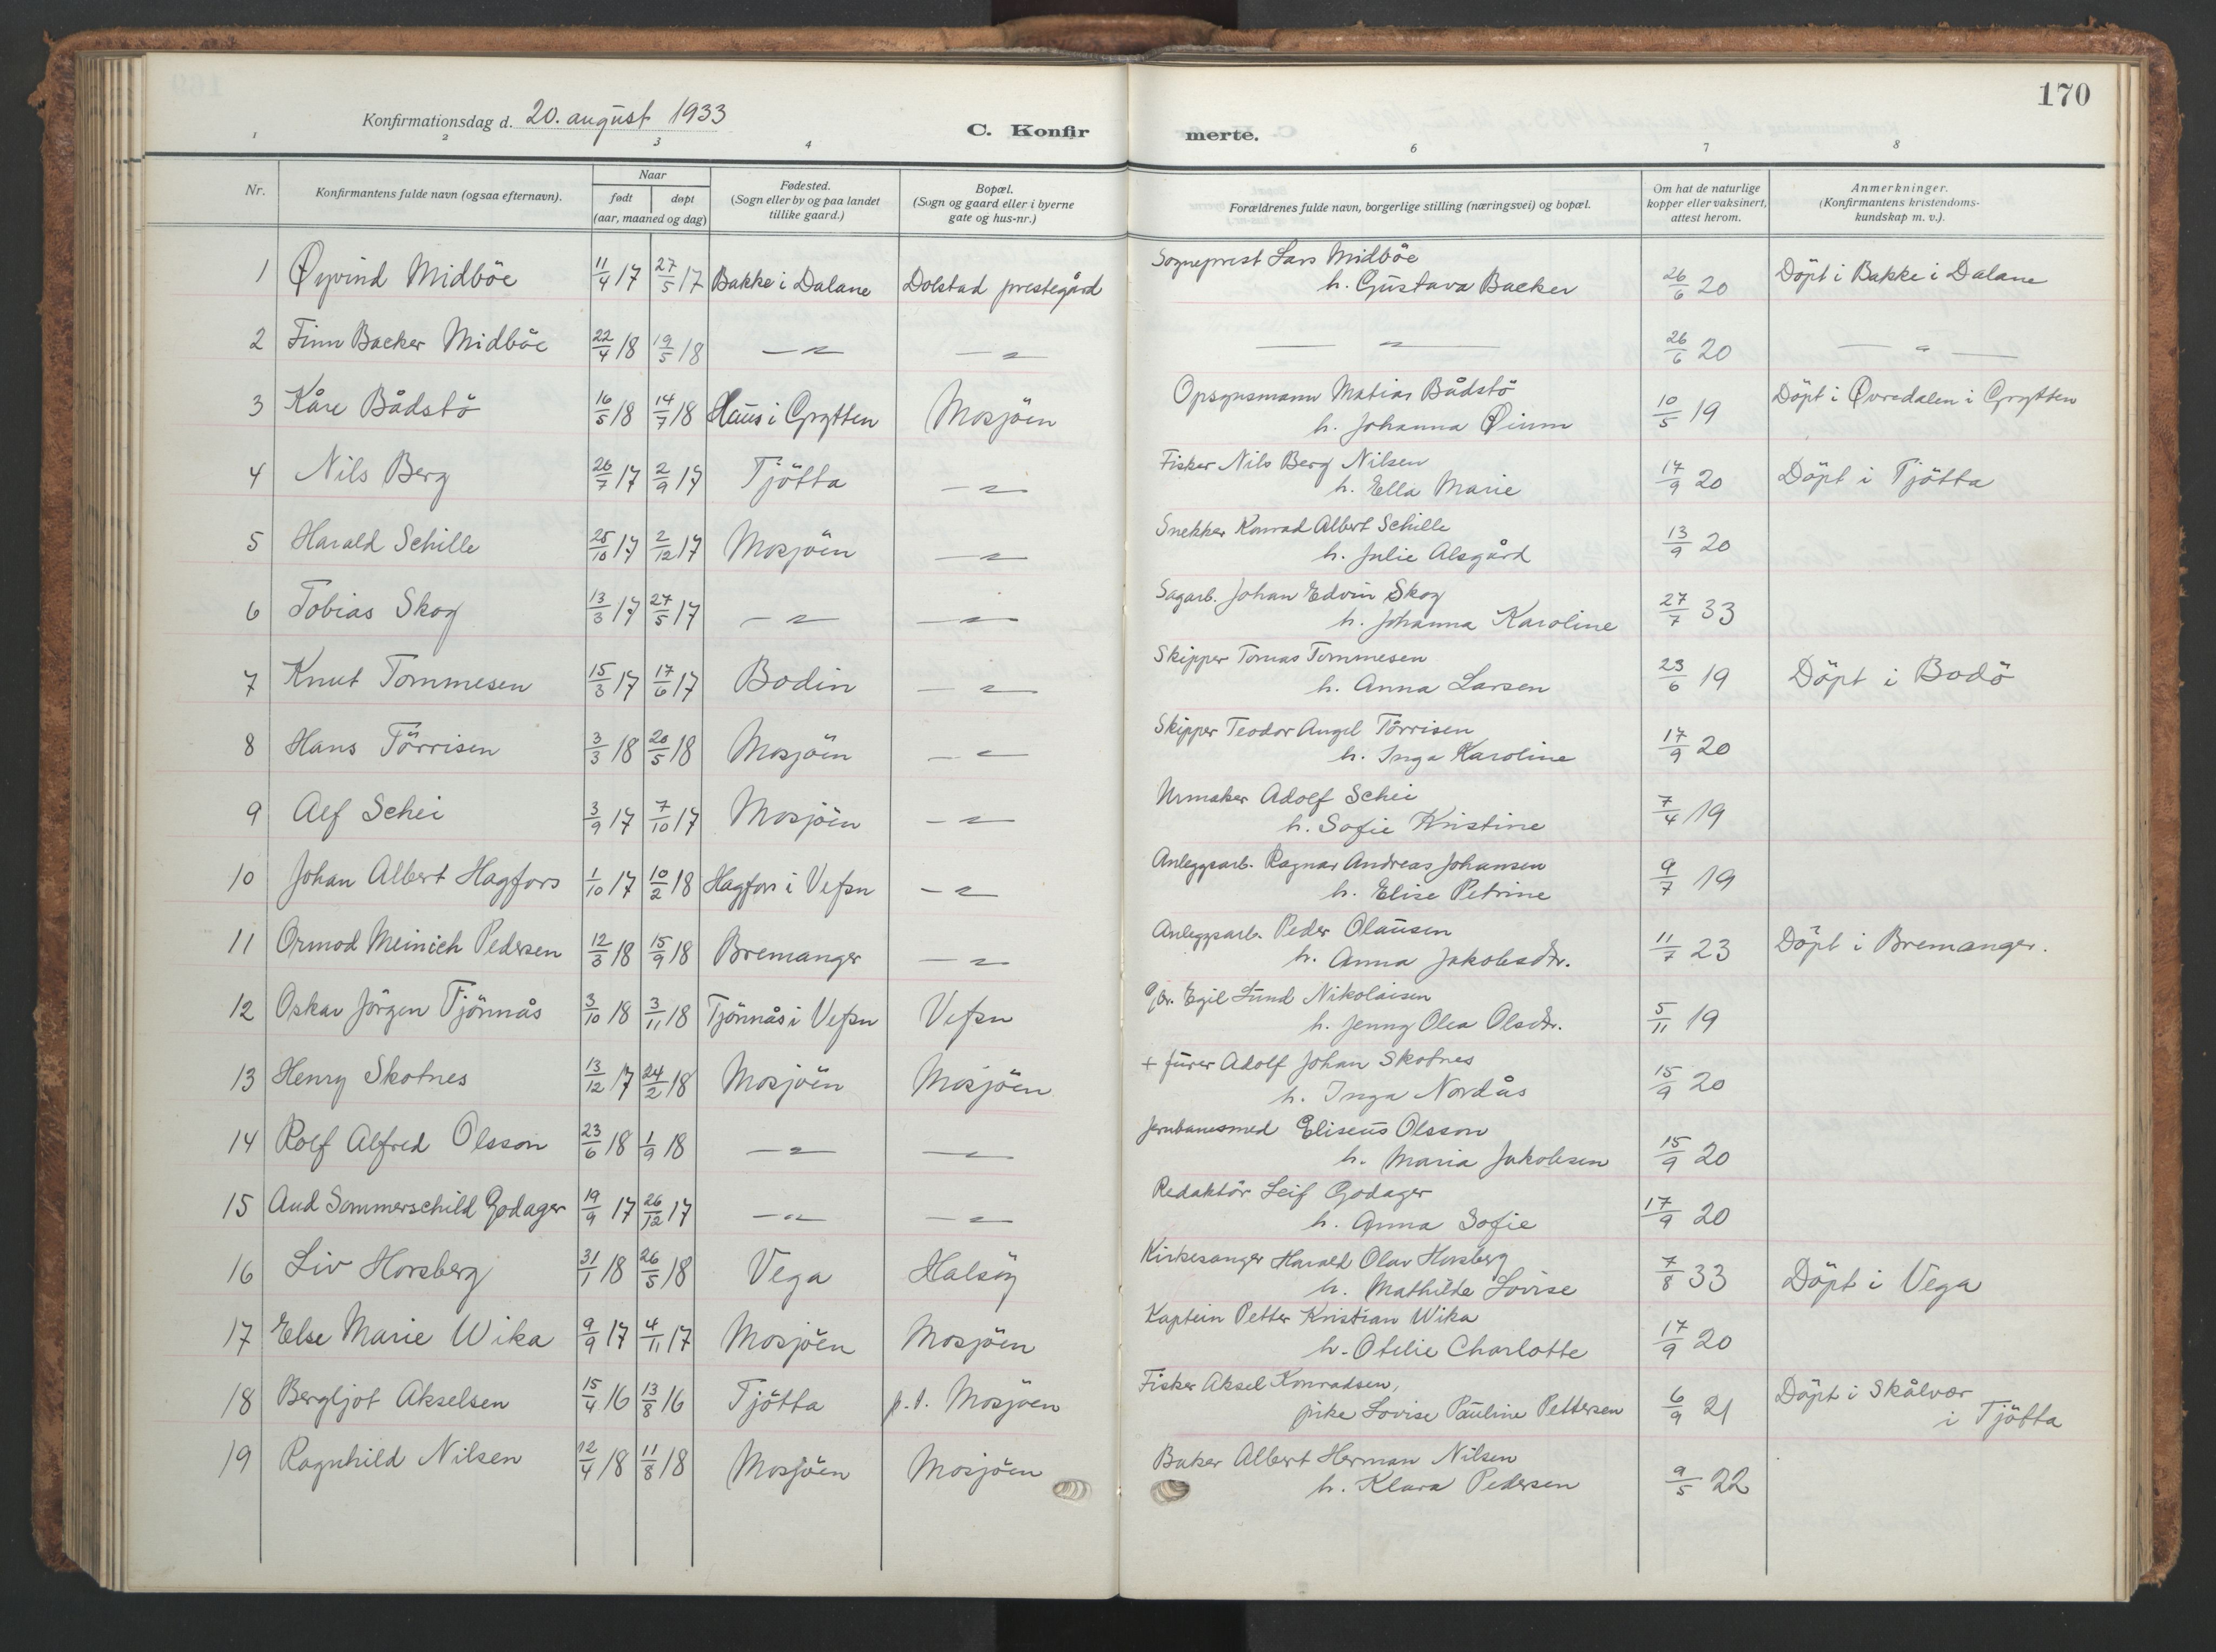 170
Konfirmationsdag d. 20. august 1933
C. Konfir merte.
1 2 3 4 6 7 8
Nr. Konfirmantens fulde navn (ogsaa efternavn). Naar født døpt (aar, maaned og dag) Fødested. (Sogn eller by og paa landet tillike gaard.) Bopæl. (Sogn og gaard eller i byerne gate og hus-nr.) Forældrenes fulde navn, borgerlige stilling (næringsvei) og bopæl. Om hat de naturlige kopper eller vaksinert, attest herom. Anmerkninger. (Konfirmantens kristendoms-kundskap m. v.).
1 Øyvind Midböe 11/4 17 27/5 17 Bakke i Dalane Dolstad prestegård Sogneprest Lars Midböe h. Gustava Backer 26/6 20 Döpt i Bakke i Dalane
2 Finn Backer Midböe 22/4 18 19/5 18 —"— —"— —"— 26/6 20 —"—
3 Kåre Bådstö 16/5 18 14/7 18 Haus i Grytten Mosjöen Opsynsmann Matias Bådstö h. Johanna Øinm 10/5 19 Döpt i Øvredalen i Grytten
4 Nils Berg 26/7 17 2/9 17 Tjötta —"— Fisker Nils Berg Nilsen h. Ella Marie 17/9 20 Döpt i Tjötta
5 Harald Schille 25/10 17 2/12 17 Mosjöen —"— Snekker Konrad Albert Schille h. Julie Alsgård 13/9 20
6 Tobias Skog 13/3 17 27/5 17 —"— —"— Sagarb. Johan Edvin Skog h. Johanna Karoline 27/7 33
7 Knut Tommesen 15/3 17 17/6 17 Bodin —"— Skipper Tomas Tommesen h. Anna Larsen 23/6 19 Döpt i Bodö
8 Hans Törrisen 3/3 18 20/5 18 Mosjöen —"— Skipper Teodor Angel Törrisen h. Inga Karoline 17/9 20
9 Alf Schei 3/9 17 7/10 17 Mosjöen —"— Urmaker Adolf Schei h. Sofie Kristine 7/4 19
10 Johan Albert Hagfors 1/10 17 10/2 18 Hagfors i Vefsn —"— Anleggsarb. Ragnar Andreas Johansen h. Elise Petrine 9/7 19
11 Ormod Meinich Pedersen 12/3 18 15/9 18 Bremanger —"— Anleggsarb. Peder Olausen h. Anna Jakobsdtr. 11/7 23 Döpt i Bremanger.
12 Oskar Jörgen Tjönnås 3/10 18 3/11 18 Tjönnås i Vefsn Vefsn Gbr. Egil Lund Nikolaisen h. Jenny Olea Olsdtr. 5/11 19
13 Henry Skotnes 13/12 17 24/2 18 Mosjöen Mosjöen + furer Adolf Johan Skotnes h. Inga Nordås 15/9 20
14 Rolf Alfred Olsson 23/6 18 1/9 18 —"— —"— Jernbanesmed Eliseus Olsson h. Maria Jakobsen 15/9 20
15 Aud Sommerschild Godager 19/9 17 26/12 17 —"— —"— Redaktör Leif Godager h. Anna Sofie 17/9 20
16 Liv Horsberg 31/1 18 26/5 18 Vega Halsöy Kirkesanger Harald Olav Horsberg h. Mathilde Lovise 7/8 33 Döpt i Vega
17 Else Marie Wika 9/9 17 4/11 17 Mosjöen Mosjöen Kaptein Petter Kristian Wika h. Otelie Charlotte 17/9 20
18 Bergljot Akselsen 15/4 16 13/8 16 Tjötta p.t. Mosjöen Fisker Aksel Konradsen, pike Lovise Pauline Pettersen 6/9 21 Döpt i Skålvær i Tjötta
19 Ragnhild Nilsen 12/4 18 11/8 18 Mosjöen Mosjöen Baker Albert Herman Nilsen h. Klara Pedersen 9/5 22